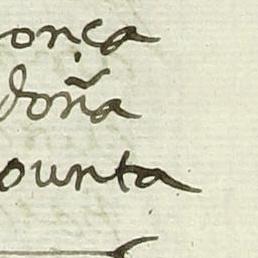 onça
doña
ounta